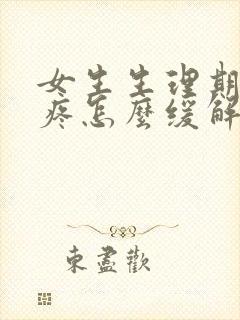 女生生理期
疼怎麼緩解
東盡歡